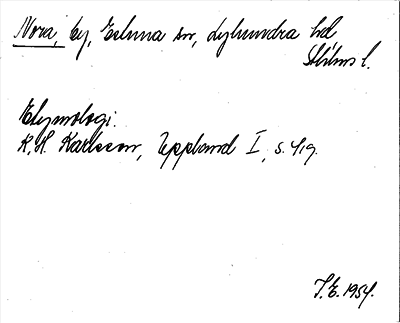 Nora, by, Estuna sn, Lyhundra hd
Sthlms l.
Etymologi:
K. H. Karlsson, Uppland I, s. 419.
T. E. 1954.